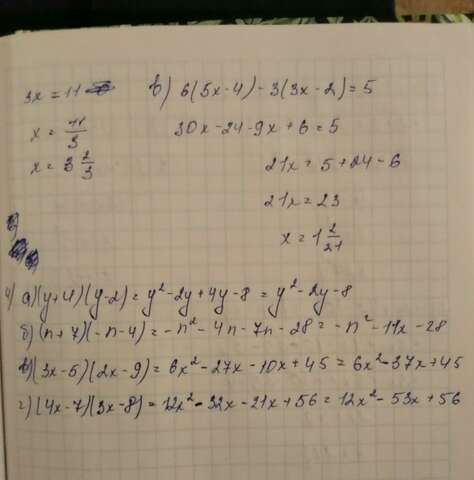 3x = 11
x = 11/3
x = 3 2/3
в) 6(5x-4)-3(3x-2)=5
30x-24-9x+6=5
21x = 5+24-6
21x = 23
x = 1 2/21
4) а)(y+4)(y-2)=y²-2y+4y-8=y²-2y-8
б)(n+7)(-n-4)=-n²-4n-7n-28=-n²-11x-28
в)(3x-5)(2x-9)=6x²-27x-10x+45=6x²-37x+45
г)(4x-7)(3x-8)=12x²-32x-21x+56=12x²-53x+56